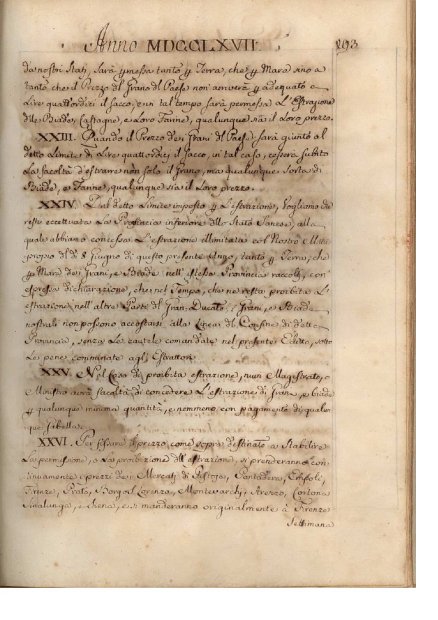 Anno MDCCLXVII. 293
da nostri Stati, sarà permessa tanto p Terra, che p Mare sino a
tanto che il Prezzo del Grano del Paese non arriverà p adequato a
Lire quattordici il sacco, e in tal tempo sarà permessa L'Estrazione
delle Biade, Castagne, e Loro Farine, qualunque sia il Loro prezzo.
XXIII. Quando il Prezzo de Grani del Paese sarà giunto al
detto Limite di Lire quattordici il sacco, in tal caso, resterà subito
La facoltà d'estrarre non solo il grano, ma qualunque sorta di
Biade, e Farine, qualunque sia il Loro prezzo.
XXIV. Dal detto Limite imposto p L'estrazione, Vogliamo che
resti eccettuata La Provincia inferiore dello Stato Senese, alla
quale abbiamo concessa L'estrazione illimitata col Nostro Motu
proprio de 8 Giugno di questo presente Anno, tanto p Terra, che
p Mare de Grani, e Biade nell'istessa Provincia raccolti, con
espressa dichiarazione, che nel Tempo, che ne resta proibita L'
estrazione nell'altre Parti del Gran-Ducato, i Grani, e Biade
nostrali non possono accostarsi alla Linea di Confine di detta
Provincia, senza Le cautele comandate nel presente Editto, sotto
Le pene comminate agli Estrattori.
XXV. Nel Caso di proibita estrazione, niun Magistrato, o
Ministro avrà facoltà di concedere L'estrazione di Grani, e Biade
p qualunque minima quantità, e nemmeno con pagamento di qualun
que
XXVI. Per fissare il prezzo, come sopra destinato a Stabilire
La permissione, o La proibizione dell'estrazione, si prenderanno con-
tinuamente i prezzi de Mercati di Pistoja, Pontadera, Empoli,
Firenze, Prato, Borgo S. Lorenzo, Montevarchi, Arezzo, Cortona
Sinalunga, e Siena, e si manderanno originalmente a Firenze
Settimana